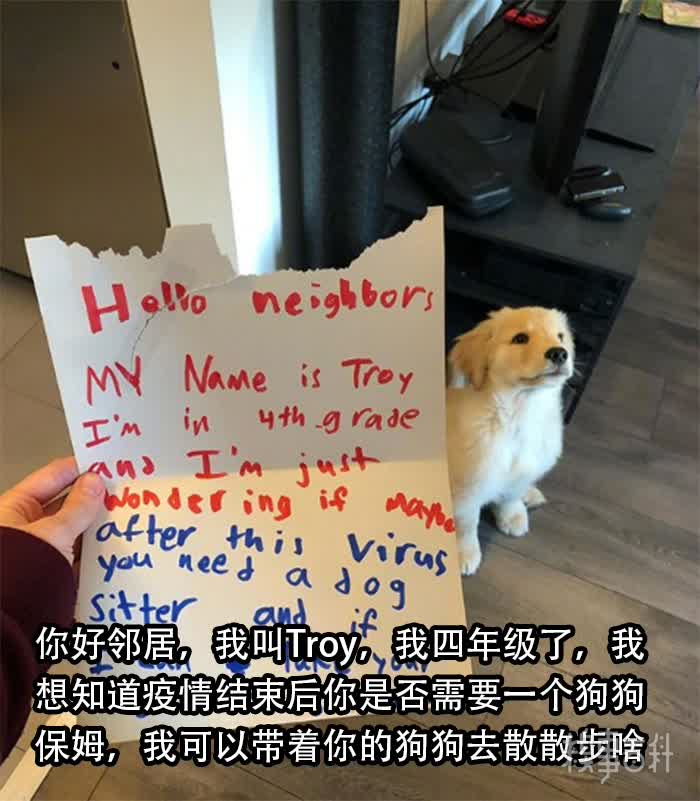 Hello neighbors
MY Name is Troy
I'm in 4th grade
and I'm just
wondering if maybe
after this virus
you need a dog
sitter and if
你好邻居，我叫Troy，我四年级了，我
想知道疫情结束后你是否需要一个狗狗
保姆，我可以带着你的狗狗去散散步啥